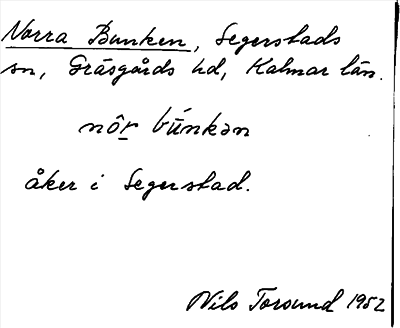 Norra Bunken, Segerstads
sn, Gräsgårds hd, Kalmar län.
nôr búnkən
åker i Segerstad.
Nils Torsund 1952